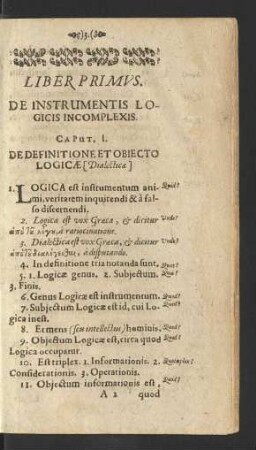 •§)3.(§•
LIBER PRIMVS.
DE INSTRUMENTIS LO-
GICIS INCOMPLEXIS.
CAPUT. I.
DE DEFINITIONE ET OBIECTO
LOGICÆ [Dialecticæ]
1. LOGICA est instrumentum ani- Quid?
mi, veritatem inquirendi & à fal-
so discernendi.
2. Logica est vox Græca, & dicitur Unde?
ἀπὸ τοῦ λόγου, à ratiocinatione.
3. Dialectica est vox Græca, & dicitur Unde?
ἀπὸ τοῦ διαλέγεσθαι, à disputando.
4. In definitione tria notanda sunt.
5. 1. Logicæ genus. 2. Subjectum. Quæ?
3. Finis.
6. Genus Logicæ est instrumentum. Quod?
7. Subjectum Logicæ est id, cui Lo- Quid?
gica inest.
8. Ermens (seu intellectus) hominis. Quod?
9. Objectum Logicæ est, circa quod Quid?
Logica occupatur.
10. Est triplex. 1. Informationis. 2. Quotuplex?
Considerationis. 3. Operationis.
11. Objectum informationis est, Quid?
A 2 quod